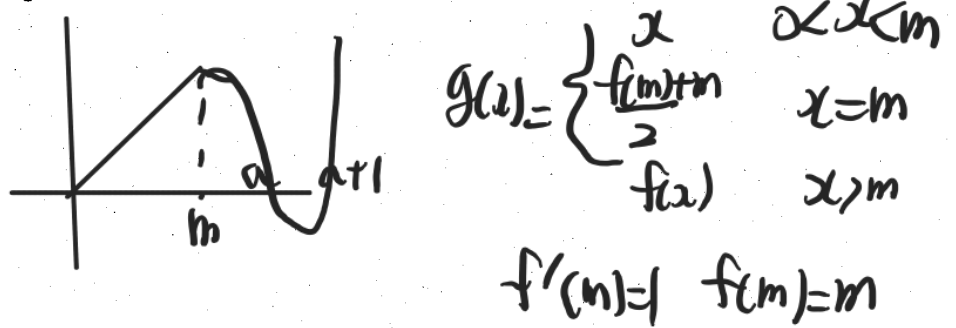 a a+1
m
g(x)= { x 0<x<m
f(m)+m/2 x=m
f(x) x>m
f'(m)=1 f(m)=m